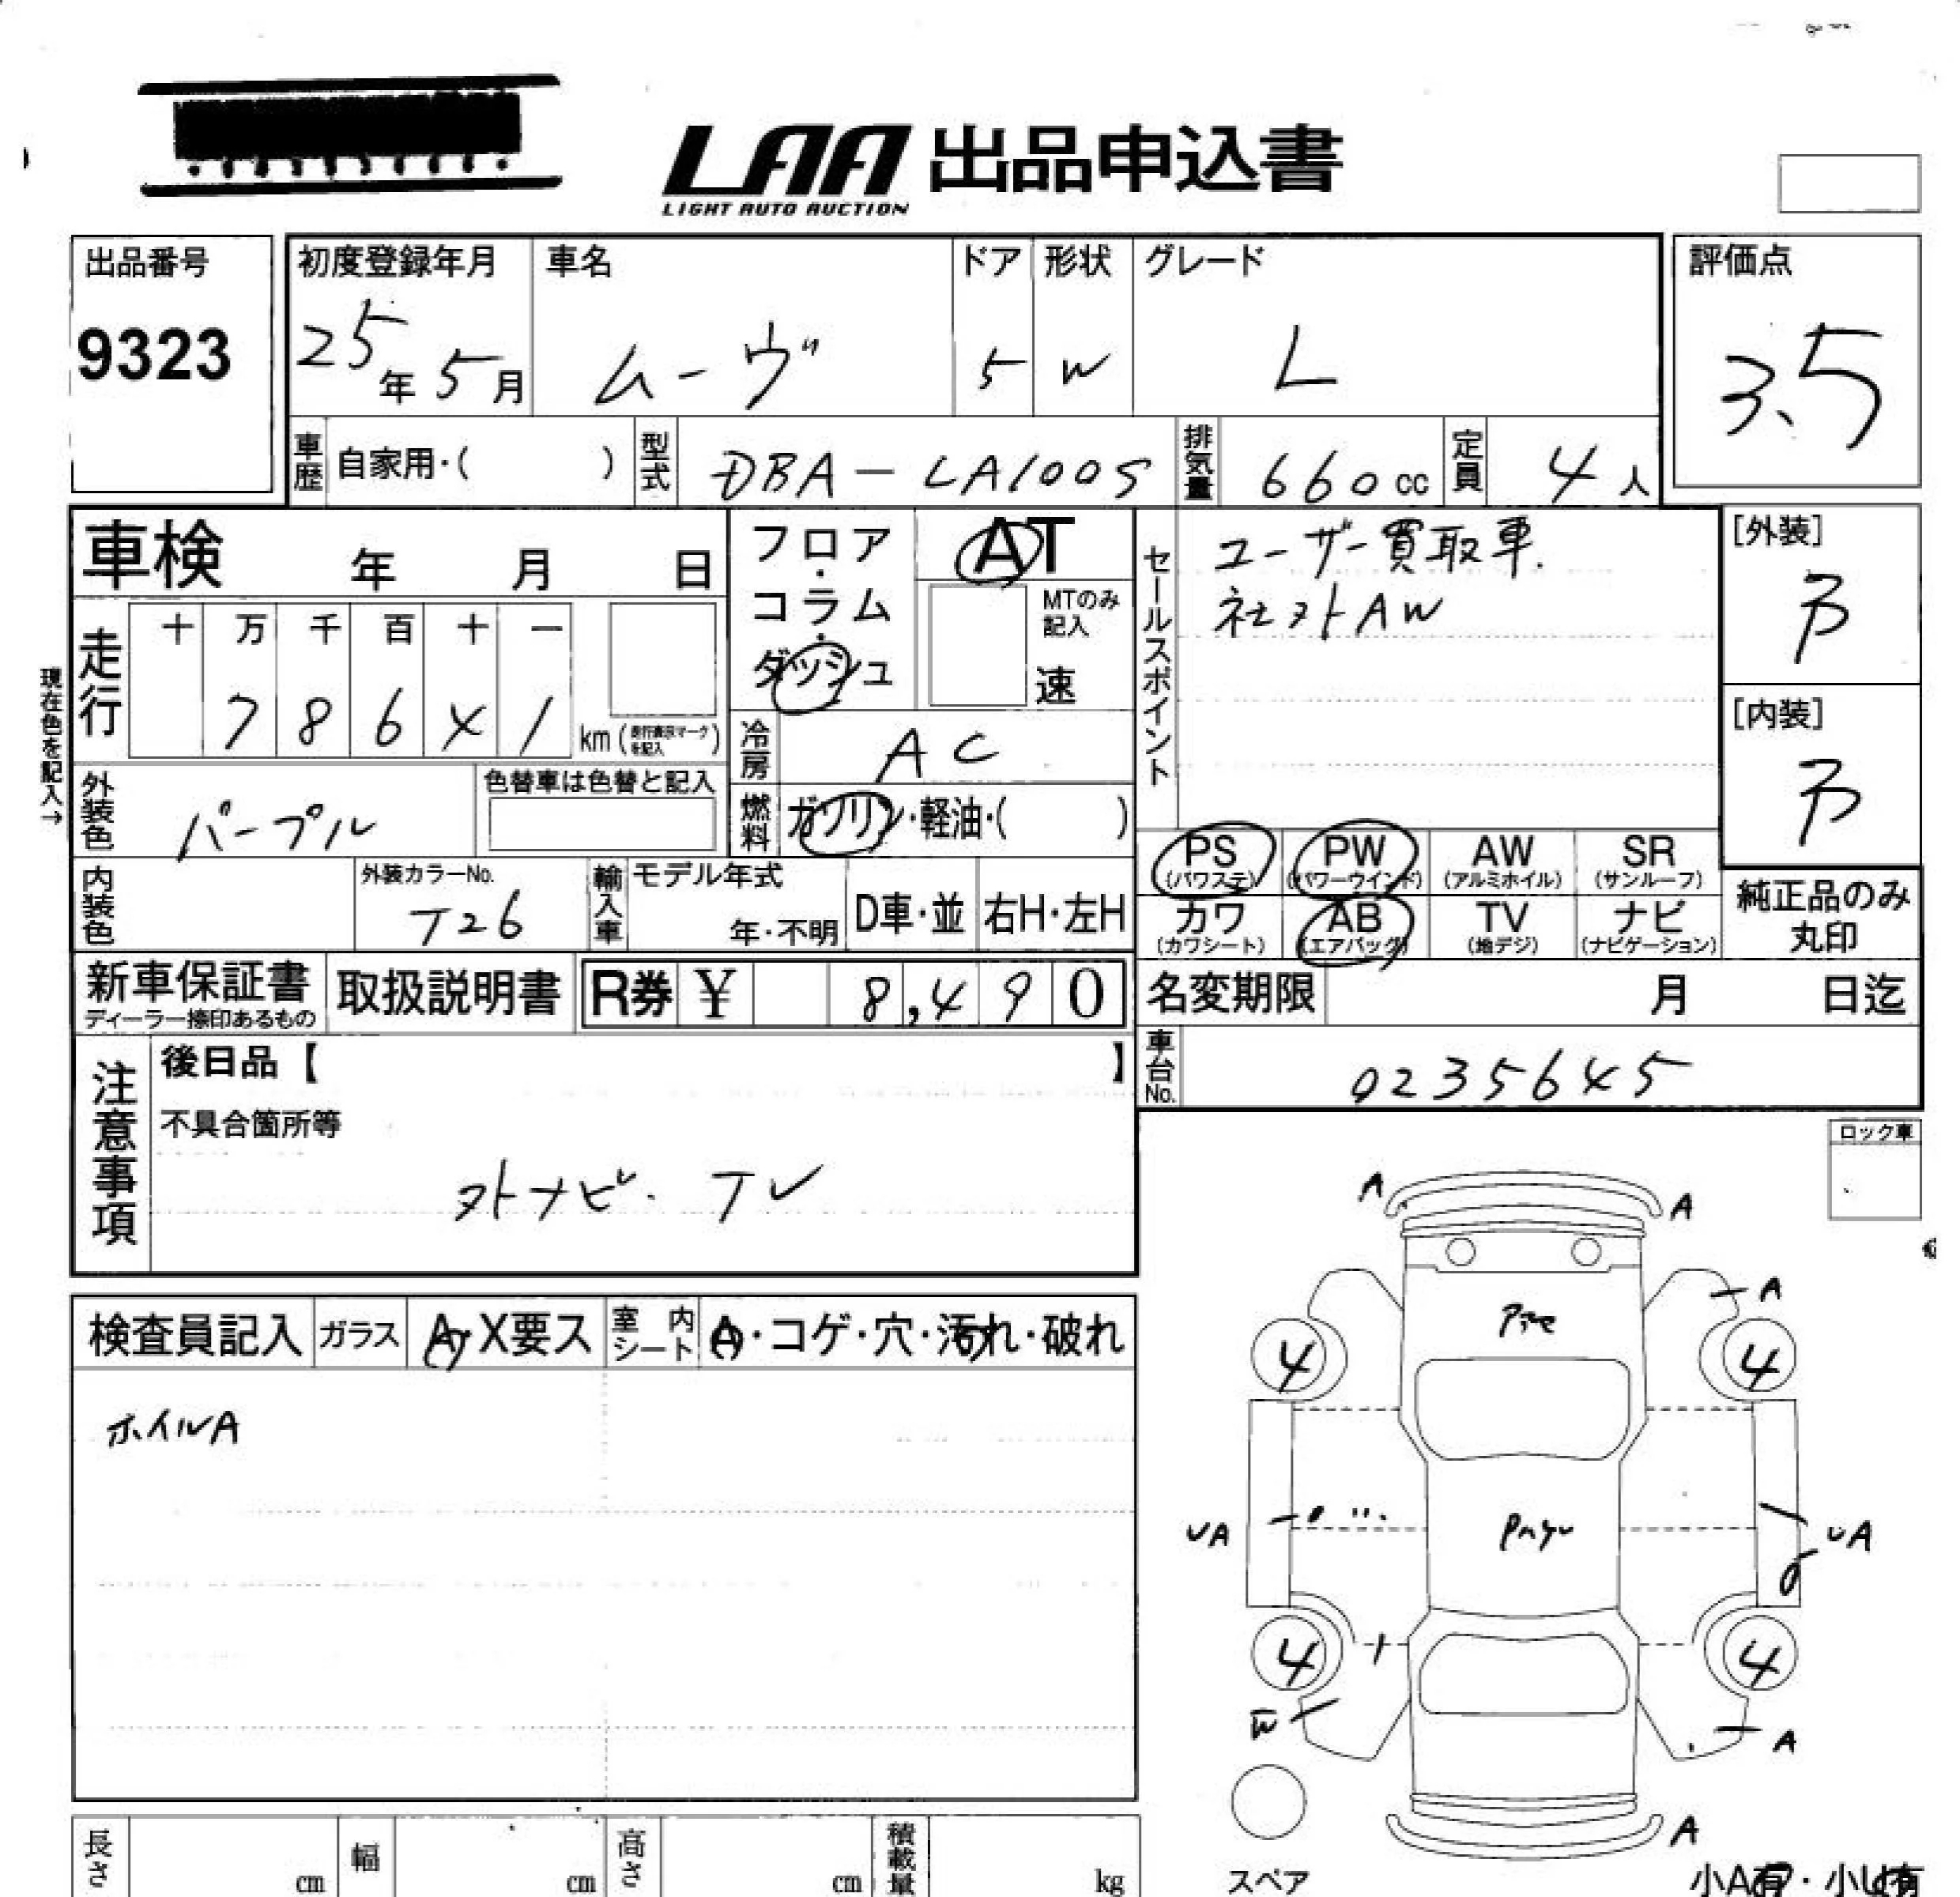 LAA 出品申込書
LIGHT AUTO AUCTION
出品番号
9323
初度登録年月
25年5月
車名
ムーヴ
ドア
5
形状
W
グレード
L
評価点
3.5
車歴 自家用・( )
型式 DBA-LA100S
排気量 660cc
定員 4人
車検 年 月 日
フロア・コラム・ダッシュ
AT
MTのみ記入
速
セールスポイント
ユーザー買取車.
社外AW
[外装]
[内装]
現在色を記入→
走行
十 万 千 百 十 一
7 8 6 4 1 km(走行表示マークを記入)
冷房 AC
外装色 パープル
色替車は色替と記入
燃料 ガソリン・軽油・( )
PS (パワステ)
PW (パワーウインド)
AW (アルミホイル)
SR (サンルーフ)
内装色
外装カラーNo.
T26
輸入車
モデル年式
年・不明
D車・並
右H・左H
カワ (カワシート)
AB (エアバッグ)
TV (地デジ)
ナビ (ナビゲーション)
純正品のみ丸印
新車保証書
ディーラー捺印あるもの
取扱説明書
R券 ¥ 8,490
名変期限 月 日迄
車台No. 0235645
注意事項
後日品【 】
不具合箇所等
外ナビ・TV
ロック車
検査員記入
ガラス A・X要ス
室内シート A・コゲ・穴・汚れ・破れ
ホイルA
A
A
A
4
4
UA
UA
4
4
W
A
A
スペア
小A有・小U有
長さ cm
幅 cm
高さ cm
積載量 kg